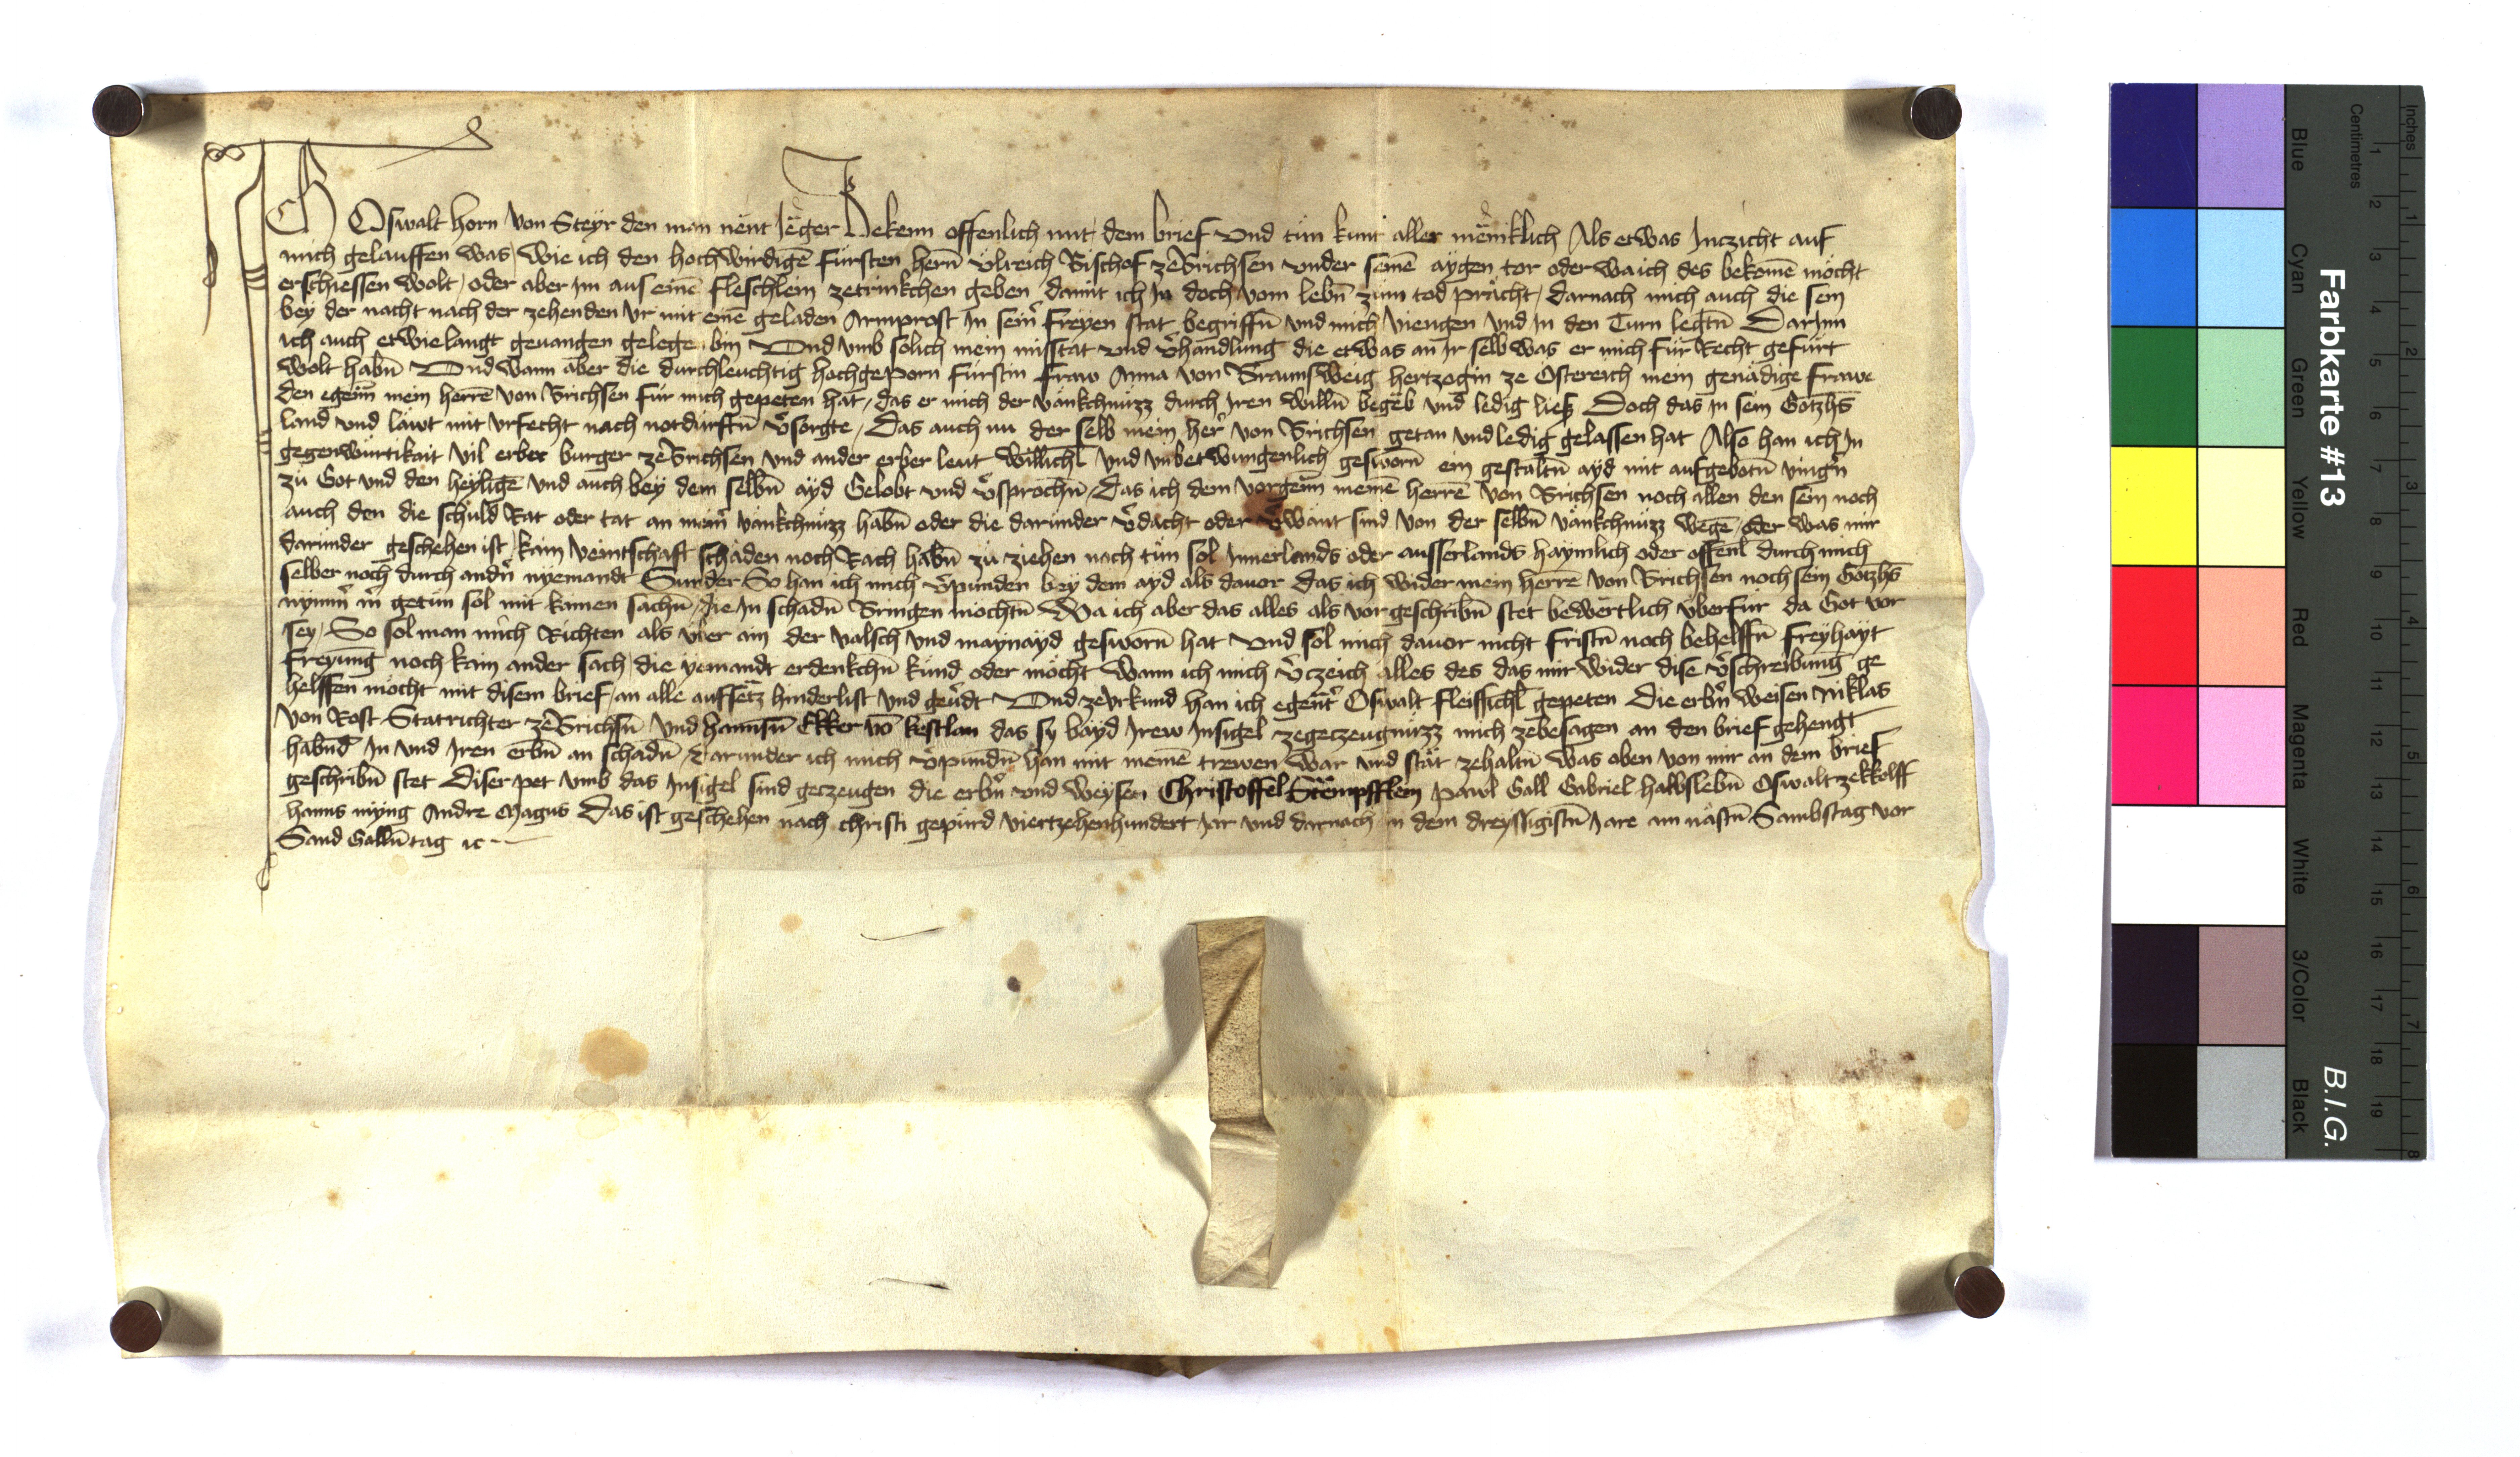 ICH Oswalt Horn von Steyr den man nent Jeger Bekenn offenlich mit dem brief Und tun kunt aller meniklich Als etwas Inczicht auf
mich gelauffen was / wie ich den hochwirdigē fürsten herñ Ulreich Bischof ze Brichsen under seinē aygen tor oder wa ich des bekomē möcht
erschiessen wolt / oder aber im aus einē fleschlein zetrinkchen geben / damit ich In doch vom lebñ zum tod prächt / darnach mich auch die sein
bey der nacht nach der zehenden Ur mit einē geladen Armprost In seinr freyen stat begriffñ und mich viengen und In den Turn legtñ Darinn
ich auch etwielangt geuangen gelegē bin Und umb solich mein misstat und v̉handlung die etwas an Ir selb was er mich für Recht gefürt
wolt habñ Und wann aber die durchleuchtig hochgeporn fürstin fraw Anna von Braunsweig hertzogin ze Österreich mein genädige frawe
den egeññ mein herrē von Brichsen für mich gepeten hat / das er mich der vänkchnüzz durch Iren willñ begeb und ledig liess Doch das In sein Gotzhs̄
land und läwt mit urfecht nach notdurftñ v̉sorgte / Das auch nu der selb mein her von Brichsen getan und ledig gelassen hat Also han ich In
gegenwürtikait vil erber burger ze Brichsen und ander erber leut willichl̄ und unbetwungenlich gesworñ ein gestaltñ ayd mit aufgebotñ vingr̉n
zu Got und den heyligē und auch bey dem selbñ ayd Gelobt und v̉sprochñ / Das ich dem vorgeññ meinē herrē von Brichsen noch allen den sein noch
auch den die schuld Rat oder tat an meinr̉ vänkchnüzz habñ oder die darunder v̉dacht oder v̉want sind von der selbñ vänkchnüzz wegē / oder was mir
darunder geschehen ist / kain veintschaft schaden noch Rach habñ zu ziehen noch tun sol Innerlands oder ausserlands haymlich oder offenl̄ durch mich
selber noch durch andr̉n nyemandt Sunder So han ich mich v̉punden bey dem ayd als dauor das ich wider mein herrē von Brichsen noch sein Gotzhs̄
nymm̉ m̉ getun sol mit kainen sachñ / die In schadñ Bringen möchtñ Wa ich aber das alles als vorgeschribñ stet bewertlich überfür da Got vor
sey / So sol man mich Richten als über ain der valsch und maynayd gesworñ hat Und sol mich dauor nicht fristñ noch behelffñ freyhayt
freyung noch kain ander sach / die yemandt erdenkchñ kund oder möcht Wann ich mich v̉czeich alles des das mir wider dise v̉schreibung ge
helffen möcht mit disem brief / an alle aufsetz hinderlist und geu̇dt Und ze Urkund han ich egent̉ Oswalt fleissichl̄ gepeten Die erbr̉n weisen Niklas
von Rost Statrichter ze Brichsñ und hannsñ Ekker vō kestlan das sy bayd Irew Insigel zegeczeugnüzz mich zebesagen an den brief gehengt
habñd In und Iren erbñ an schadñ / Darunder ich mich v̉pundñ han mit meinē trewen War und stät zehaltñ was oben von mir an dem brief
geschribñ stet Diser pet umb das Insigel sind geczeugen die erbr̉n und weysen Christoffel Stempfflein Pawl Gall Gabriel halbslebñ Oswalt zekkolff
hanns nyng Andre Magus Das ist geschehen nach christi gepurd viertzehenhundert Jar und darnach in dem dreyssigistñ Jare am nästñ Sambstag vor
Sand Gallñ tag ⁊c
Farbkarte #13
B.I.G.
Blue Cyan Green Yellow Red Magenta White 3/Color Black
Centimetres 1 2 3 4 5 6 7 8 9 10 11 12 13 14 15 16 17 18 19
Inches 1 2 3 4 5 6 7 8